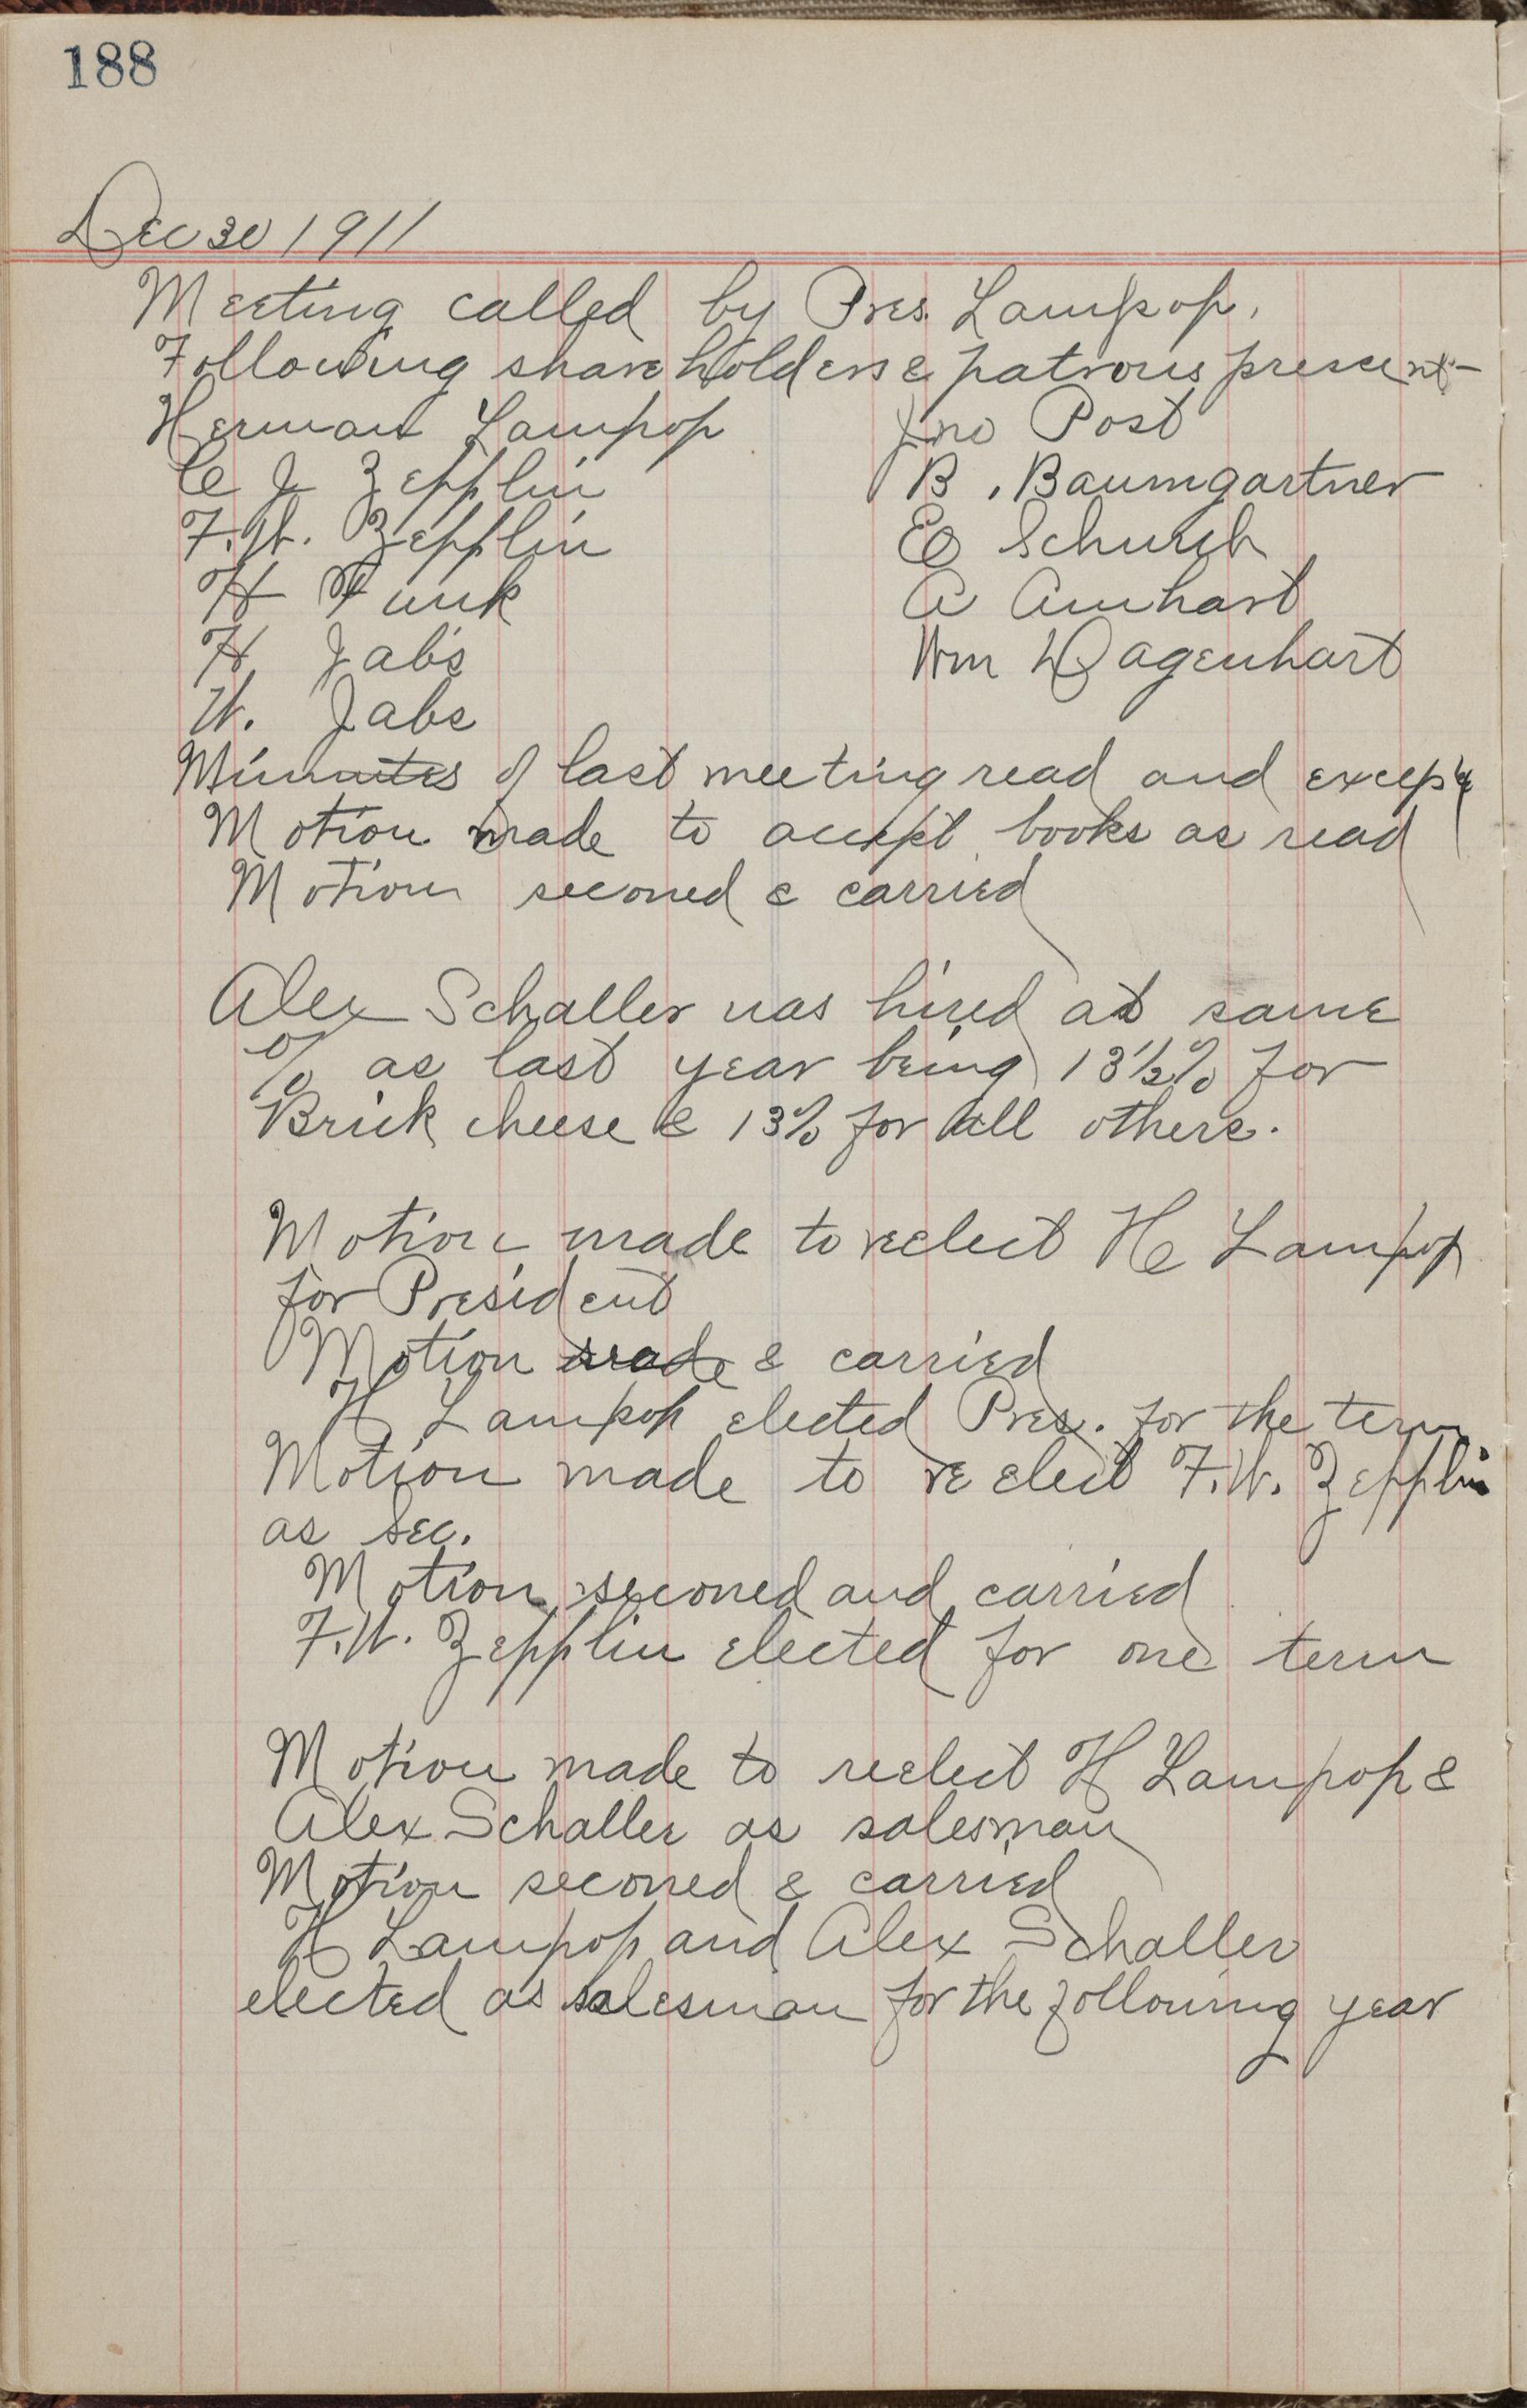 188
Dec 30 1911
Meeting called by Pres. Lampop.
Following share holders & patrons present-
Herman Lampop Jno Post
C J Zepplin B. Baumgartner
F.W. Zepplin E Schurch
H Funk A Amhart
H Jabs Wm Dagenhart
W. Jabs
Minutes of last meeting read and
Motion made to accept books as read
Motion seconed & carried
Alex Schaller was hired at same
% as last year being 13½% for
Brick cheese & 13% for all others.
Motion made to reelect H Lampop
for President
Motion made & carried
H Lampop elected Pres. for the term
Motion made to re elect F.W. Zepplin
as Sec.
Motion seconed and carried
F.W. Zepplin elected for one term
Motion made to reelect H Lampop &
Alex Schaller as salesman
Motion seconed & carried
H Lampop and Alex Schaller
elected as salesman for the following year